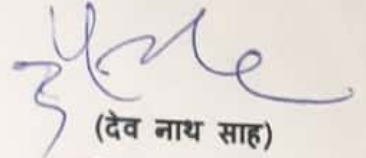 (देव नाथ साह)